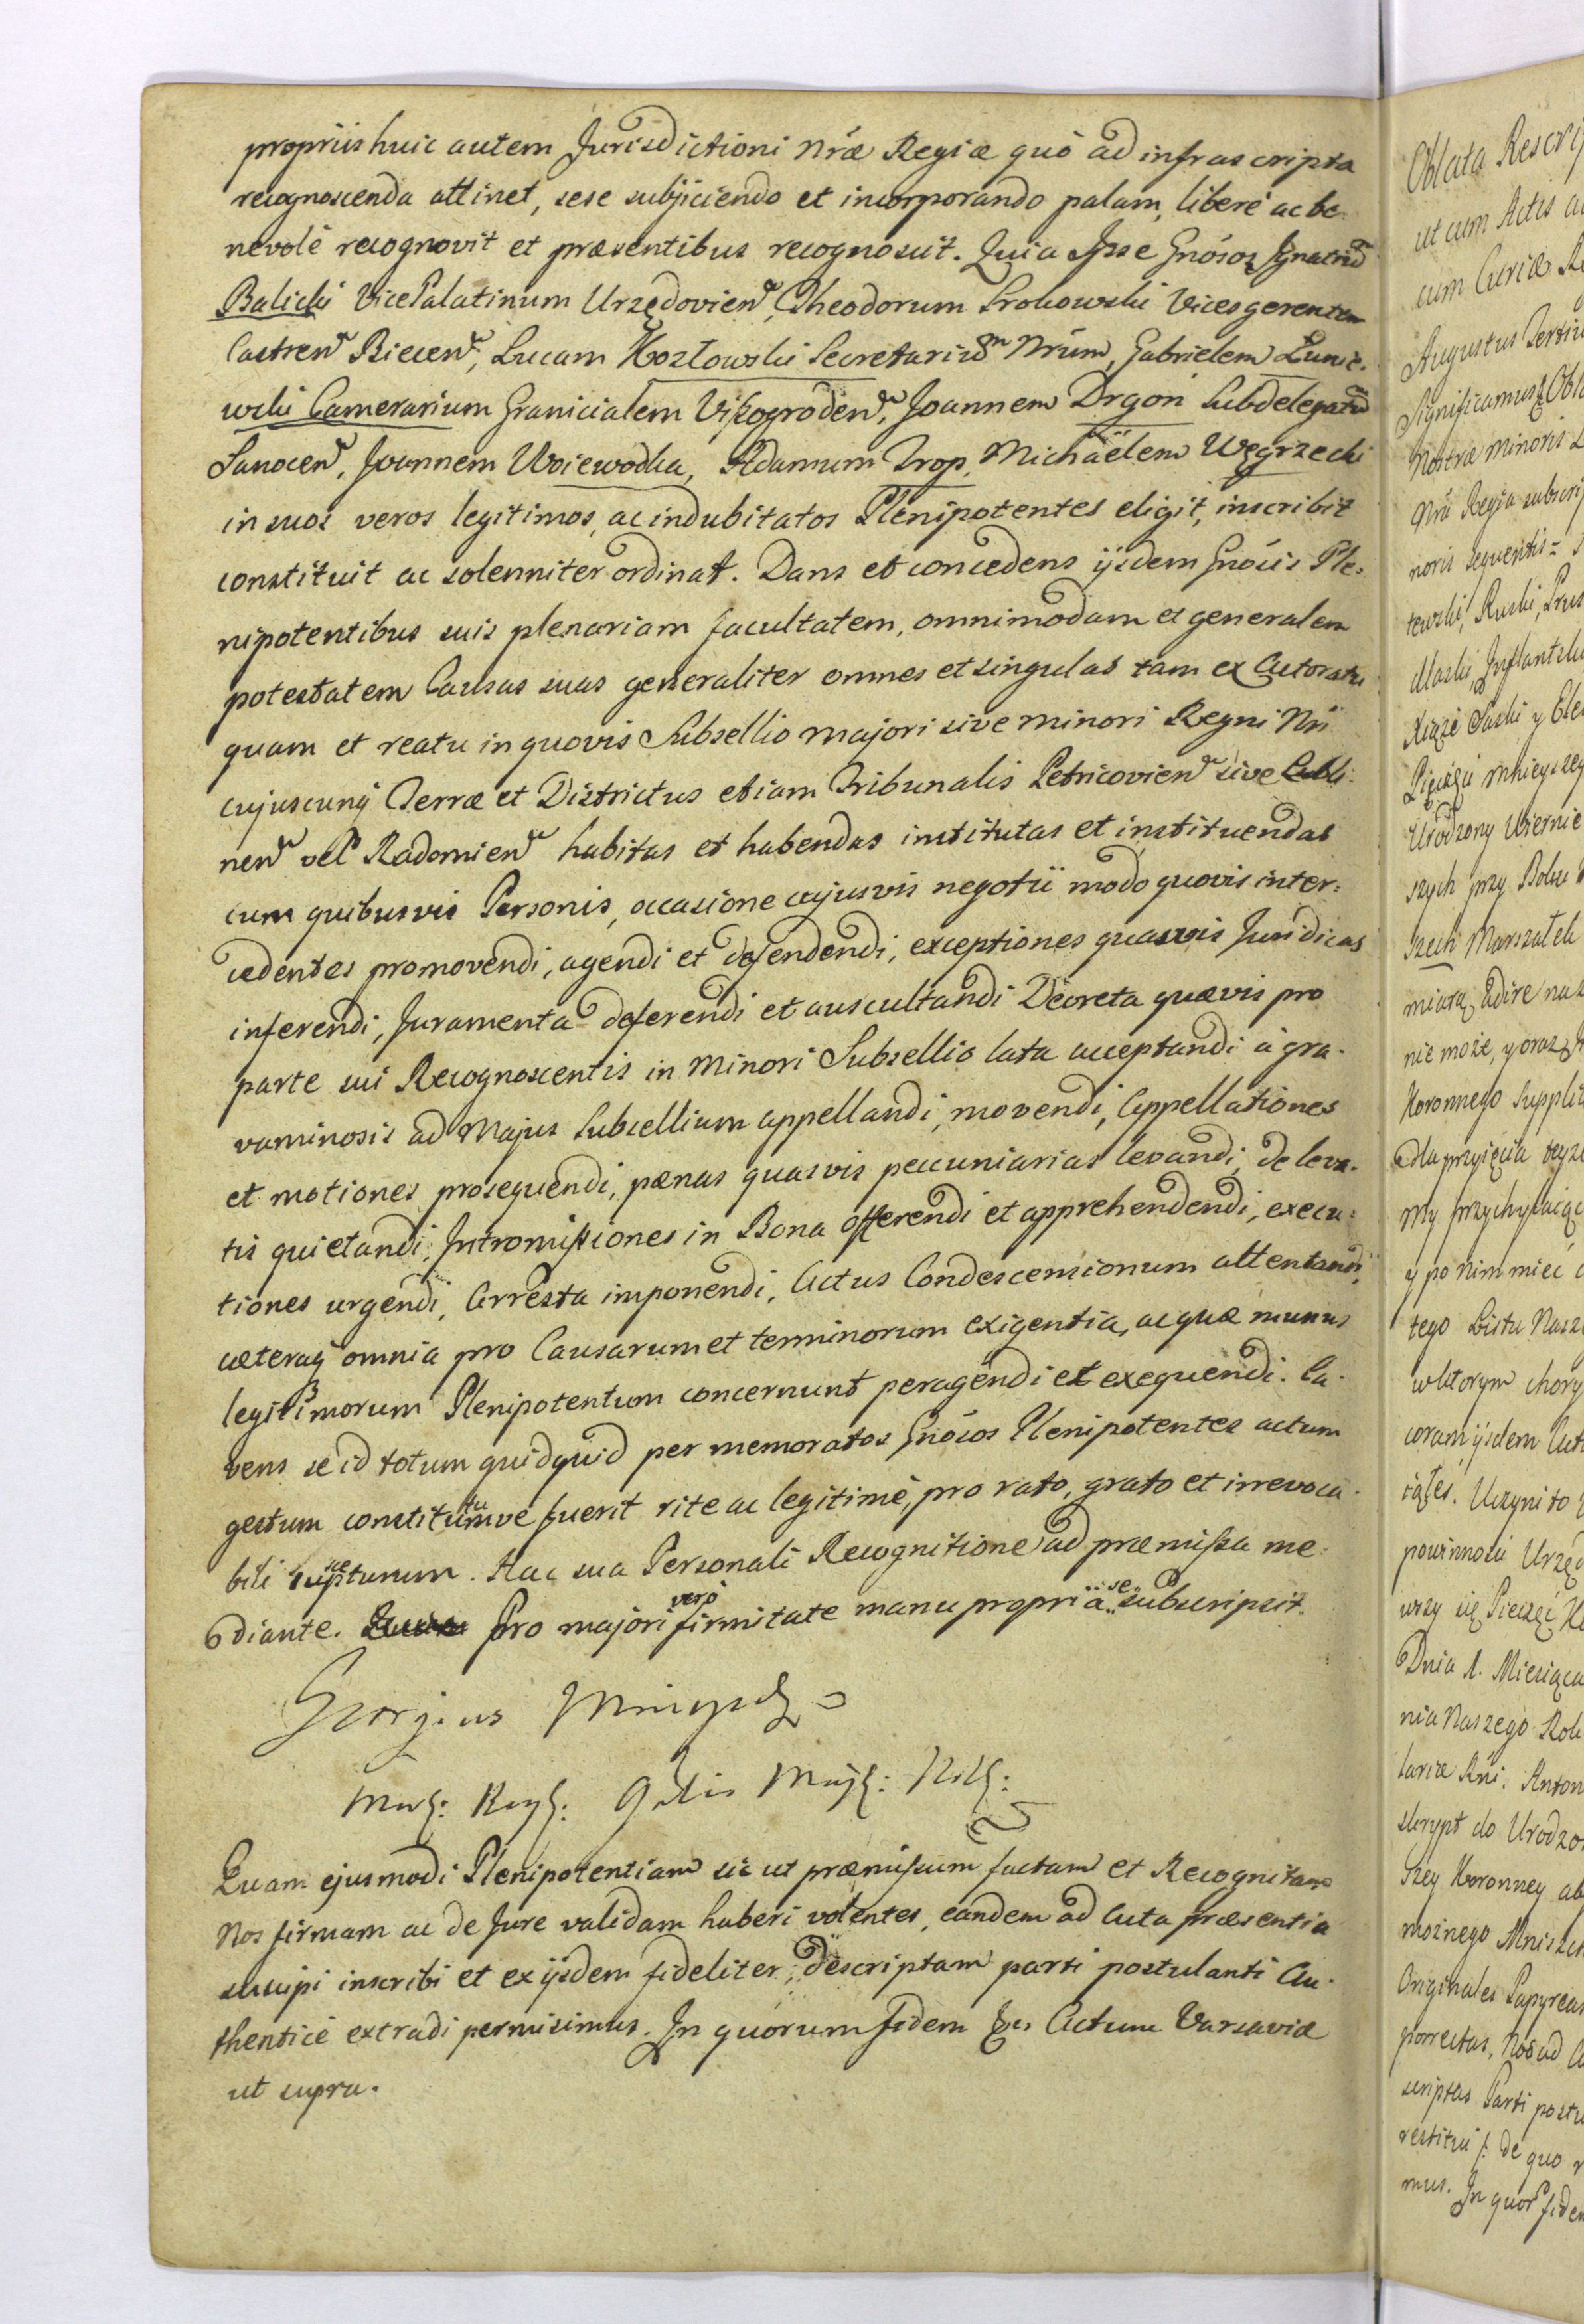 propriis huic autem Jurisdictioni Nrae Regiae quò ad infrascripta
recognoscenda attinet, sese subjiciendo et incorporando palam, liberè ac be-
nevolè recognovit et praesentibus recognoscit. Quia Ipse Gnósos Ignatiũ
Balicki Vice Palatinum Urzędovien, Theodorum Srokowski Vicesgerentem
Castren Biecen, Lucam Kozłowski Secretariũm Nrum, Gabrielem Łunie-
wski Camerarium Granicialem Viszogroden, Joannem Drgon Subdelegatũ
Sanocen, Joannem Woiewodka, Adamum Trop, Michaëlem Węgrzecki
in suos veros legitimos, ac indubitatos Plenipotentes eligit, inscribit
constituit ac solenniter ordinat. Dans et concedens ijsdem Gnósis Ple-
nipotentibus suis plenariam facultatem, omnimodam et generalem
potestatem Causas suas generaliter omnes et singulas tam ex Actoratu
quam et reatu in quovis Subsellio majori sive minori Regni Nri
cujuscunq Terrae et Districtus etiam Tribunalis Petricovien sive Lubli-
nen vel Radomien habitas et habendas institutas et instituendas
cum quibusvis Personis, occasione cujusvis negotii modo quovis inter-
cedentes promovendi, agendi et defendendi, exceptiones quasvis Juridicas
inferendi, Juramenta deferendi et auscultandi Decreta quaevis pro
parte sui Recognoscentis in Minori Subsellio lata acceptandi à gra-
vaminosis ad Majus Subsellium appellandi, movendi, Appellationes
et motiones prosequendi, paenas quasvis pecuniarias levandi, de leva-
tis quietandi, Intromissiones in Bona offerendi et apprehendendi, execu-
tiones urgendi, Arresta imponendi, Actus Condescensionum attentandi,
caeteraq omnia pro Causarum et terminorum exigentia, ac quae munus
legitimorum Plenipotentum concernunt peragendi et exequendi. Ca-
vens se id totum quidquid per memoratos Gnósos Plenipotentes actum
gestum constitutumve fuerit rite ac legitimè, pro rato, grato et irrevoca-
bili suscepturum. Hac sua Personali Recognitione ad praemissa me-
diante. Pro majori verò firmitate manu propriâ se subscripsit.
Georgius Mniszch
Quam ejusmodi Plenipotentiam sic ut praemissum factam et Recognitam
Nos firmam ac de Jure validam haberi volentes, eandem ad Acta praesentia
suscipi inscribi et ex ijsdem fideliter descriptam parti postulanti Au-
thenticè extradi permisimus. In quorum fidem Actum Varsaviae
ut supra.
Oblata Rescrip
ut cum Actis
cum Curiae
Augustus Tertiu
Significamus
Nostrae minoris
Nrâ Regia subscri
noris sequentis
tewski, Ruski, Prus
Inflantski
Xiąże Saski y Ele
Pieczęci mnieyszey
Urodzony Wiernie
szych przy Boku
szech Marszałek
miotą adire na
nie może, y oraz
Koronnego
dla przyięcia teyże
My przychylaiąc
y po nim mieć
tego Listu Nasze
w ktorym
coram ijsdem
Uczyni to
powinności Urzęd
wszy się Pieczęć
Dnia Miesiąca
nia Naszego Rok
Anton
skrypt do Urodzo
szey Koronney
możnego Mniszch
Originales Papyreas
porrectas, Nos ad
scriptas Parti postu
restitui de quo
mus. In quor fidem